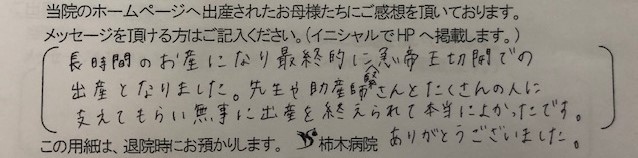 当院のホームページへ出産されたお母様たちにご感想を頂いております。
メッセージを頂ける方はご記入ください。(イニシャルでHPへ掲載します。)
長時間のお産になり最終的に緊急帝王切開での
出産となりました。先生や助産師さんとたくさんの人に
支えてもらい無事に出産を終えられて本当によかったです。
この用紙は、退院時にお預かりします。 柿木病院 ありがとうございました。